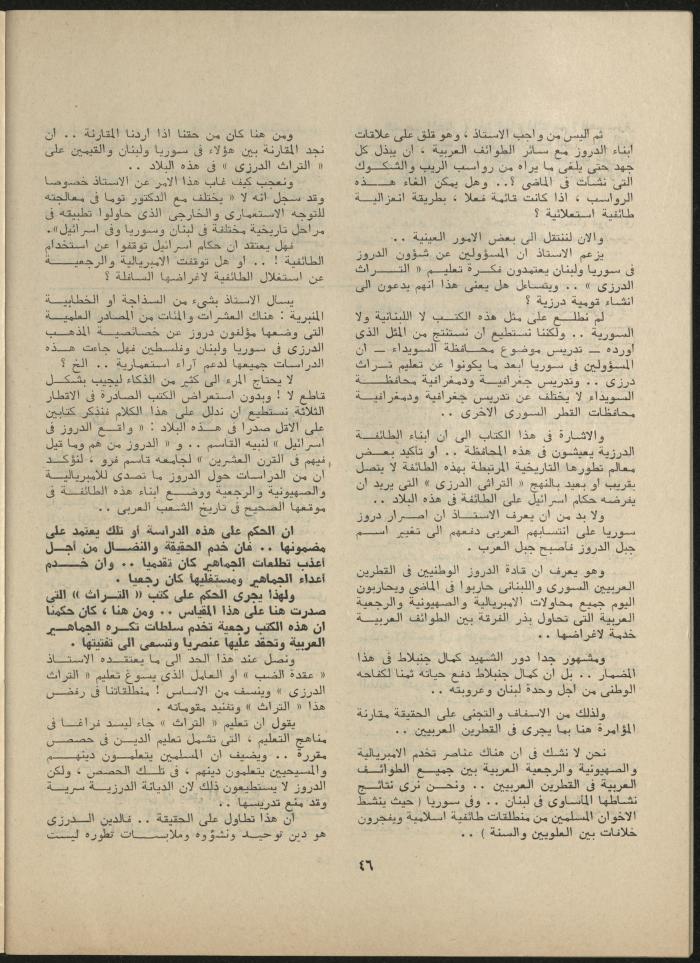 ثم اليس من واجب الاستاذ ، وهو قلق على علاقات
ابناء الدروز مع سائر الطوائف العربية ، ان يبذل كل
جهد حتى يلغى ما يراه من رواسب الريب والشكوك
التى نشأت فى الماضى ؟.. وهل يمكن الغاء هذه
الرواسب ، اذا كانت قائمة فعلا ، بطريقة انعزالية
طائفية استعلائية ؟
والان لننتقل الى بعض الامور العينية ..
يزعم الاستاذ ان المسؤولين عن شؤون الدروز
فى سوريا ولبنان يعتمدون فكرة تعليم « التراث
الدرزى » .. ويتساءل هل يعنى هذا انهم يدعون الى
انشاء قومية درزية ؟
لم نطلع على مثل هذه الكتب لا اللبنانية ولا
السورية .. ولكننا نستطيع ان نستنتج من المثل الذى
اورده ــ تدريس موضوع محافظة السويداء ــ ان
المسؤولين فى سوريا ابعد ما يكونوا عن تعليم تراث
درزى .. وتدريس جغرافية ودمغرافية محافظة
السويداء لا يختلف عن تدريس جغرافية ودمغرافية
محافظات القطر السورى الاخرى ..
والاشارة فى هذا الكتاب الى ان ابناء الطائفة
الدرزية يعيشون فى هذه المحافظة .. او تأكيد بعض
معالم تطورها التاريخية المرتبطة بهذه الطائفة لا يتصل
بقريب او بعيد بالنهج « التراثى الدرزى » التى يريد ان
يفرضه حكام اسرائيل على الطائفة فى هذه البلاد ..
ولا بد من ان يعرف الاستاذ ان اصرار دروز
سوريا على انتسابهم العربى دفعهم الى تغيير اسم
جبل الدروز فاصبح جبل العرب .
وهو يعرف ان قادة الدروز الوطنيين فى القطرين
العربيين السورى واللبنانى حاربوا فى الماضى ويحاربون
اليوم جميع محاولات الامبريالية والصهيونية والرجعية
العربية التى تحاول بذر الفرقة بين الطوائف العربية
خدمة لاغراضها ..
ومشهور جدا دور الشهيد كمال جنبلاط فى هذا
المضمار .. بل ان كمال جنبلاط دفع حياته ثمنا لكفاحه
الوطنى من اجل وحدة لبنان وعروبته ..
ولذلك من الاسفاف والتجنى على الحقيقة مقارنة
المؤامرة هنا بما يجرى فى القطرين العربيين ..
نحن لا نشك فى ان هناك عناصر تخدم الامبريالية
والصهيونية والرجعية العربية بين جميع الطوائف
العربية فى القطرين العربيين .. ونحن نرى نتائج
نشاطها الماساوى فى لبنان .. وفى سوريا ( حيث ينشط
الاخوان المسلمين من منطلقات طائفية اسلامية ويفجرون
خلافات بين العلويين والسنة ) ..
ومن هنا كان من حقنا اذا اردنا المقارنة .. ان
نجد المقارنة بين هؤلاء فى سوريا ولبنان والقيمين على
« التراث الدرزى » فى هذه البلاد ..
ونعجب كيف غاب هذا الامر عن الاستاذ خصوصا
وقد سجل انه لا « يختلف مع الدكتور توما فى معالجته
للتوجه الاستعمارى والخارجى الذى حاولوا تطبيقه فى
مراحل تاريخية مختلفة فى لبنان وسوريا وفى اسرائيل».
فهل يعتقد ان حكام اسرائيل توقفوا عن استخدام
الطائفية ! .. او هل توقفت الامبريالية والرجعية
عن استغلال الطائفية لاغراضها السافلة ؟
يسأل الاستاذ بشىء من السذاجة او الخطابية
المنبرية : هناك العشرات والمئات من المصادر العلمية
التى وضعها مؤلفون دروز عن خصائصية المذهب
الدرزى فى سوريا ولبنان وفلسطين فهل جاءت هذه
الدراسات جميعها لدعم آراء استعمارية .. الخ ؟
لا يحتاج المرء الى كثير من الذكاء ليجيب بشكل
قاطع لا ! وبدون استعراض الكتب الصادرة فى الاقطار
الثلاثة نستطيع ان ندلل على هذا الكلام فنذكر كتابين
على الاقل صدرا فى هذه البلاد : « واقع الدروز فى
اسرائيل » لنبيه القاسم .. و « الدروز من هم وما قيل
فيهم فى القرن العشرين » لجامعه قاسم فرو ، لنؤكد
ان من الدراسات حول الدروز ما تصدى للامبريالية
والصهيونية والرجعية ووضع ابناء هذه الطائفة فى
موقعها الصحيح فى تاريخ الشعب العربى ..
ان الحكم على هذه الدراسة أو تلك يعتمد على
مضمونها .. فان خدم الحقيقة والنضال من أجل
أعذب تطلعات الجماهير كان تقدميا .. وان خدم
أعداء الجماهير ومستغليها كان رجعيا .
ولهذا يجرى الحكم على كتب « التراث » التى
صدرت هنا على هذا المقياس .. ومن هنا ، كان حكمنا
ان هذه الكتب رجعية تخدم سلطات تكره الجماهير
العربية وتحقد عليها عنصريا وتسعى الى تفتيتها .
ونصل عند هذا الحد الى ما يعتقده الاستاذ
« عقدة الضب » او العامل الذى يسوغ تعليم « التراث
الدرزى » وينسف من الاساس ! منطلقاتنا فى رفض
هذا « التراث » وتفنيد مقوماته .
يقول ان تعليم « التراث » جاء ليسد فراغا فى
مناهج التعليم ، التى تشمل تعليم الدين فى حصص
مقررة .. ويضيف ان المسلمين يتعلمون دينهم
والمسيحيين يتعلمون دينهم ، فى تلك الحصص ، ولكن
الدروز لا يستطيعون ذلك لان الديانة الدرزية سرية
وقد منع تدريسها ..
ان هذا تطاول على الحقيقة .. فالدين الدرزى
هو دين توحيد ونشؤوه وملابسات تطوره ليست
٤٦